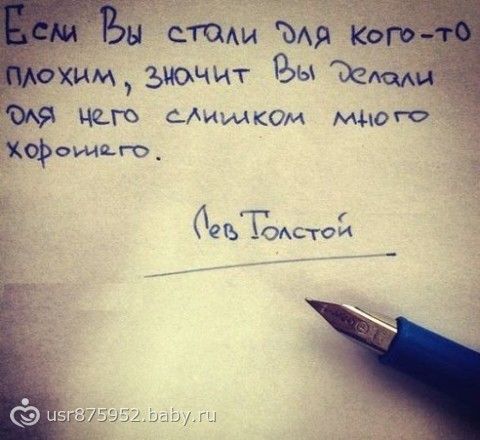 Если Вы стали для кого-то
плохим, значит Вы делали
для него слишком много
хорошего.
Лев Толстой
usr875952.baby.ru